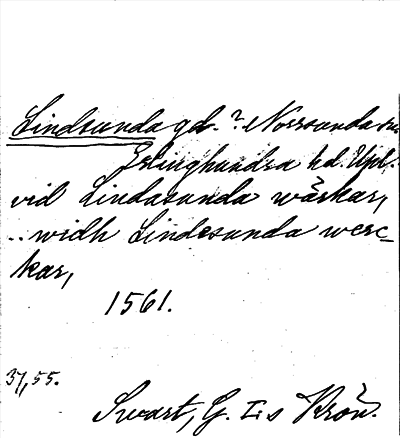 Lindsunda gd. ? Norrsunda sn.
Erlinghundra hd. Upl.
vid Lindasunda wärkar,
..widh Lindesunda werc-
kar,
1561.
37,55.
Swart, G. I:s Krön.